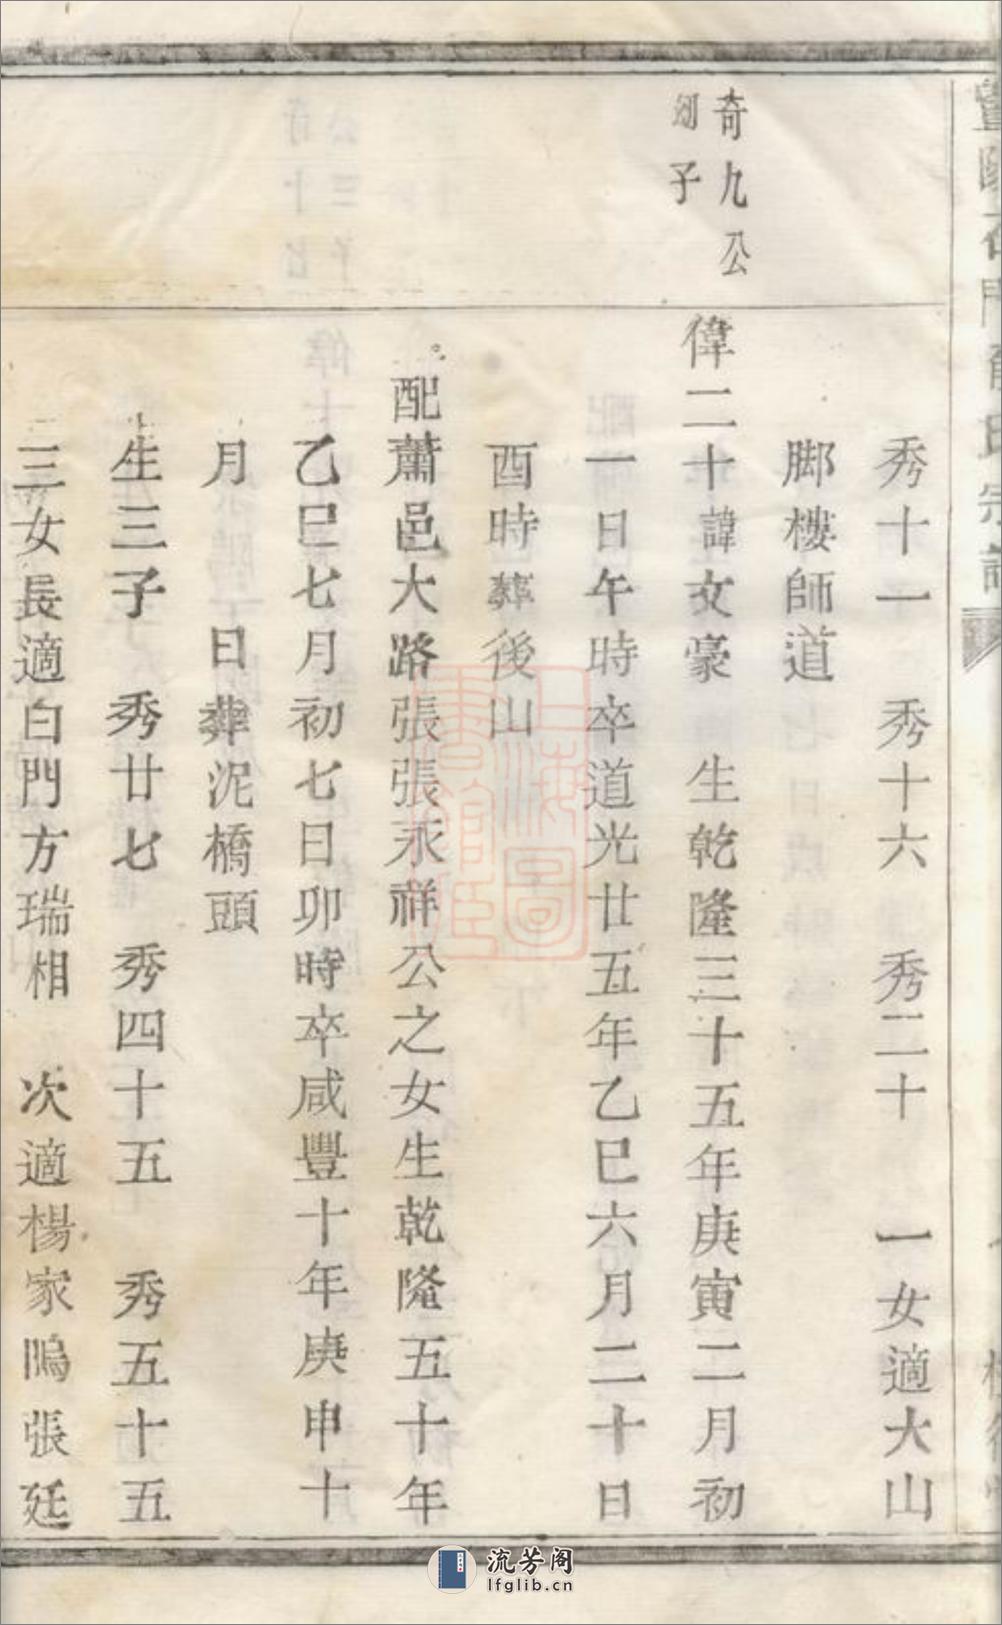 秀十一 秀十六 秀二十 一女適大山
脚樓師道
奇九公
子
偉二十諱文豪 生乾隆三十五年庚寅二月初
一日午時卒道光廿五年乙巳六月二十日
酉時葬後山
配蕭邑大路張張永祥公之女生乾隆五十年
乙巳七月初七日卯時卒咸豐十年庚申十
月 日葬泥橋頭
生三子 秀廿七 秀四十五 秀五十五
三女長適白門方瑞相 次適楊家鳴張廷
上海圖書館藏
流芳阁
lfglib.cn